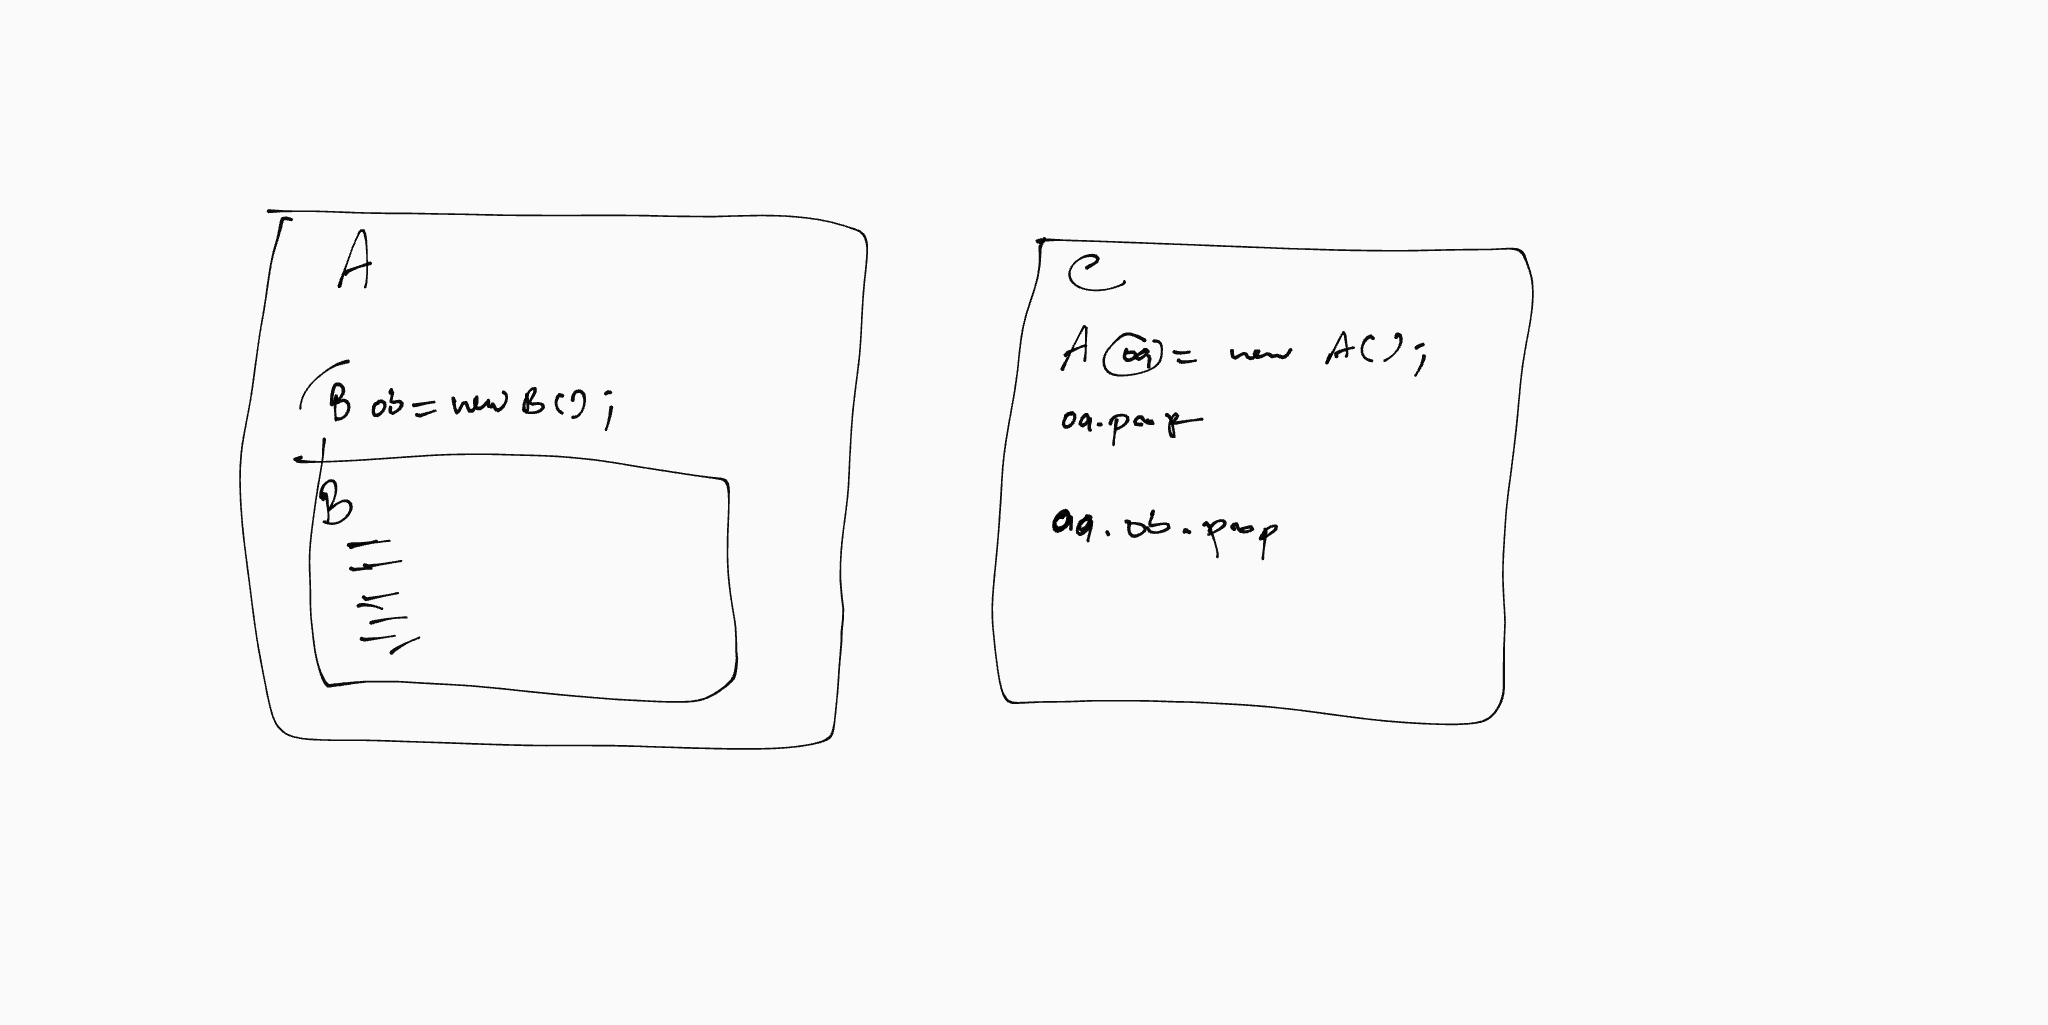 A
B ob = new B();
B
C
A oa = new A();
oa.prop
oa.ob.prop